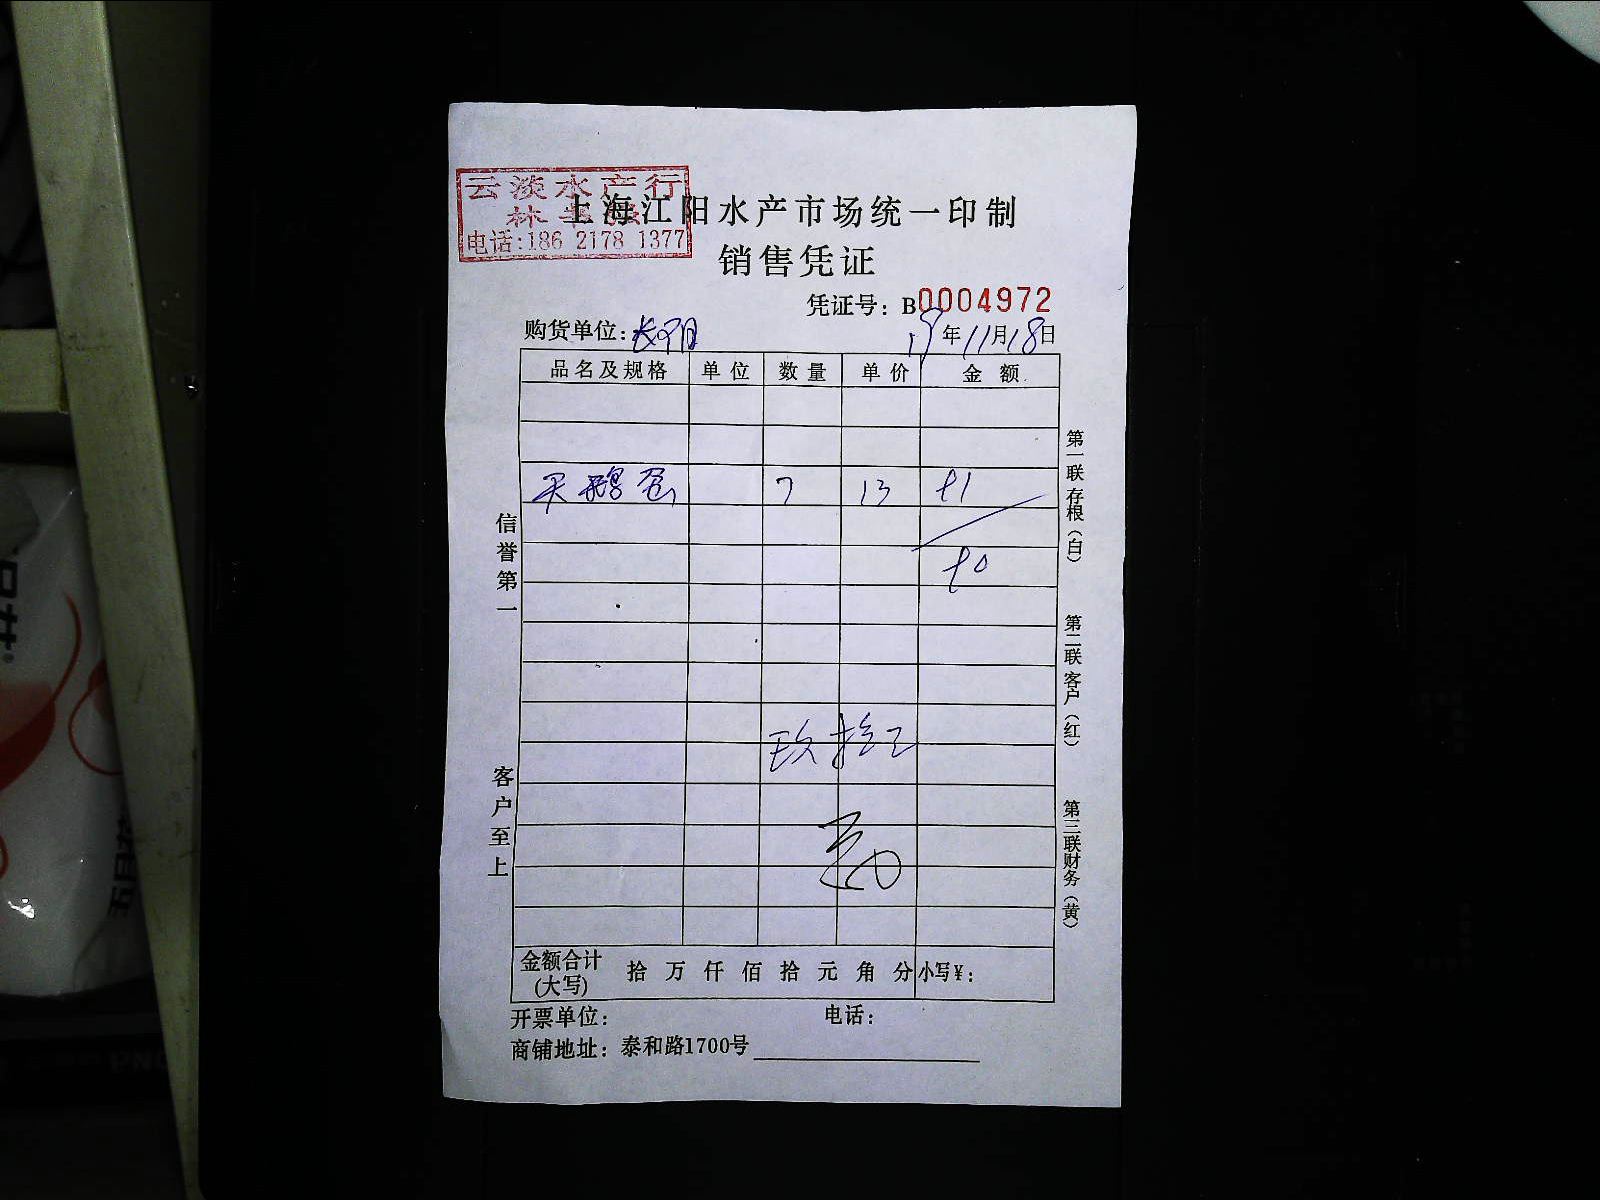 云淡水产行
电话:186 2178 1377
上海江阳水产市场统一印制
销售凭证
凭证号: B0004972
购货单位: 长阳 19年11月18日
品名及规格 单位 数量 单价 金额
天鹅蛋 7 13 91
90
玖拾元
金额合计(大写) 拾万仟佰拾元角分 小写¥:
开票单位: 电话:
商铺地址: 泰和路1700号
信誉第一
客户至上
第一联存根(白)
第二联客户(红)
第三联财务(黄)